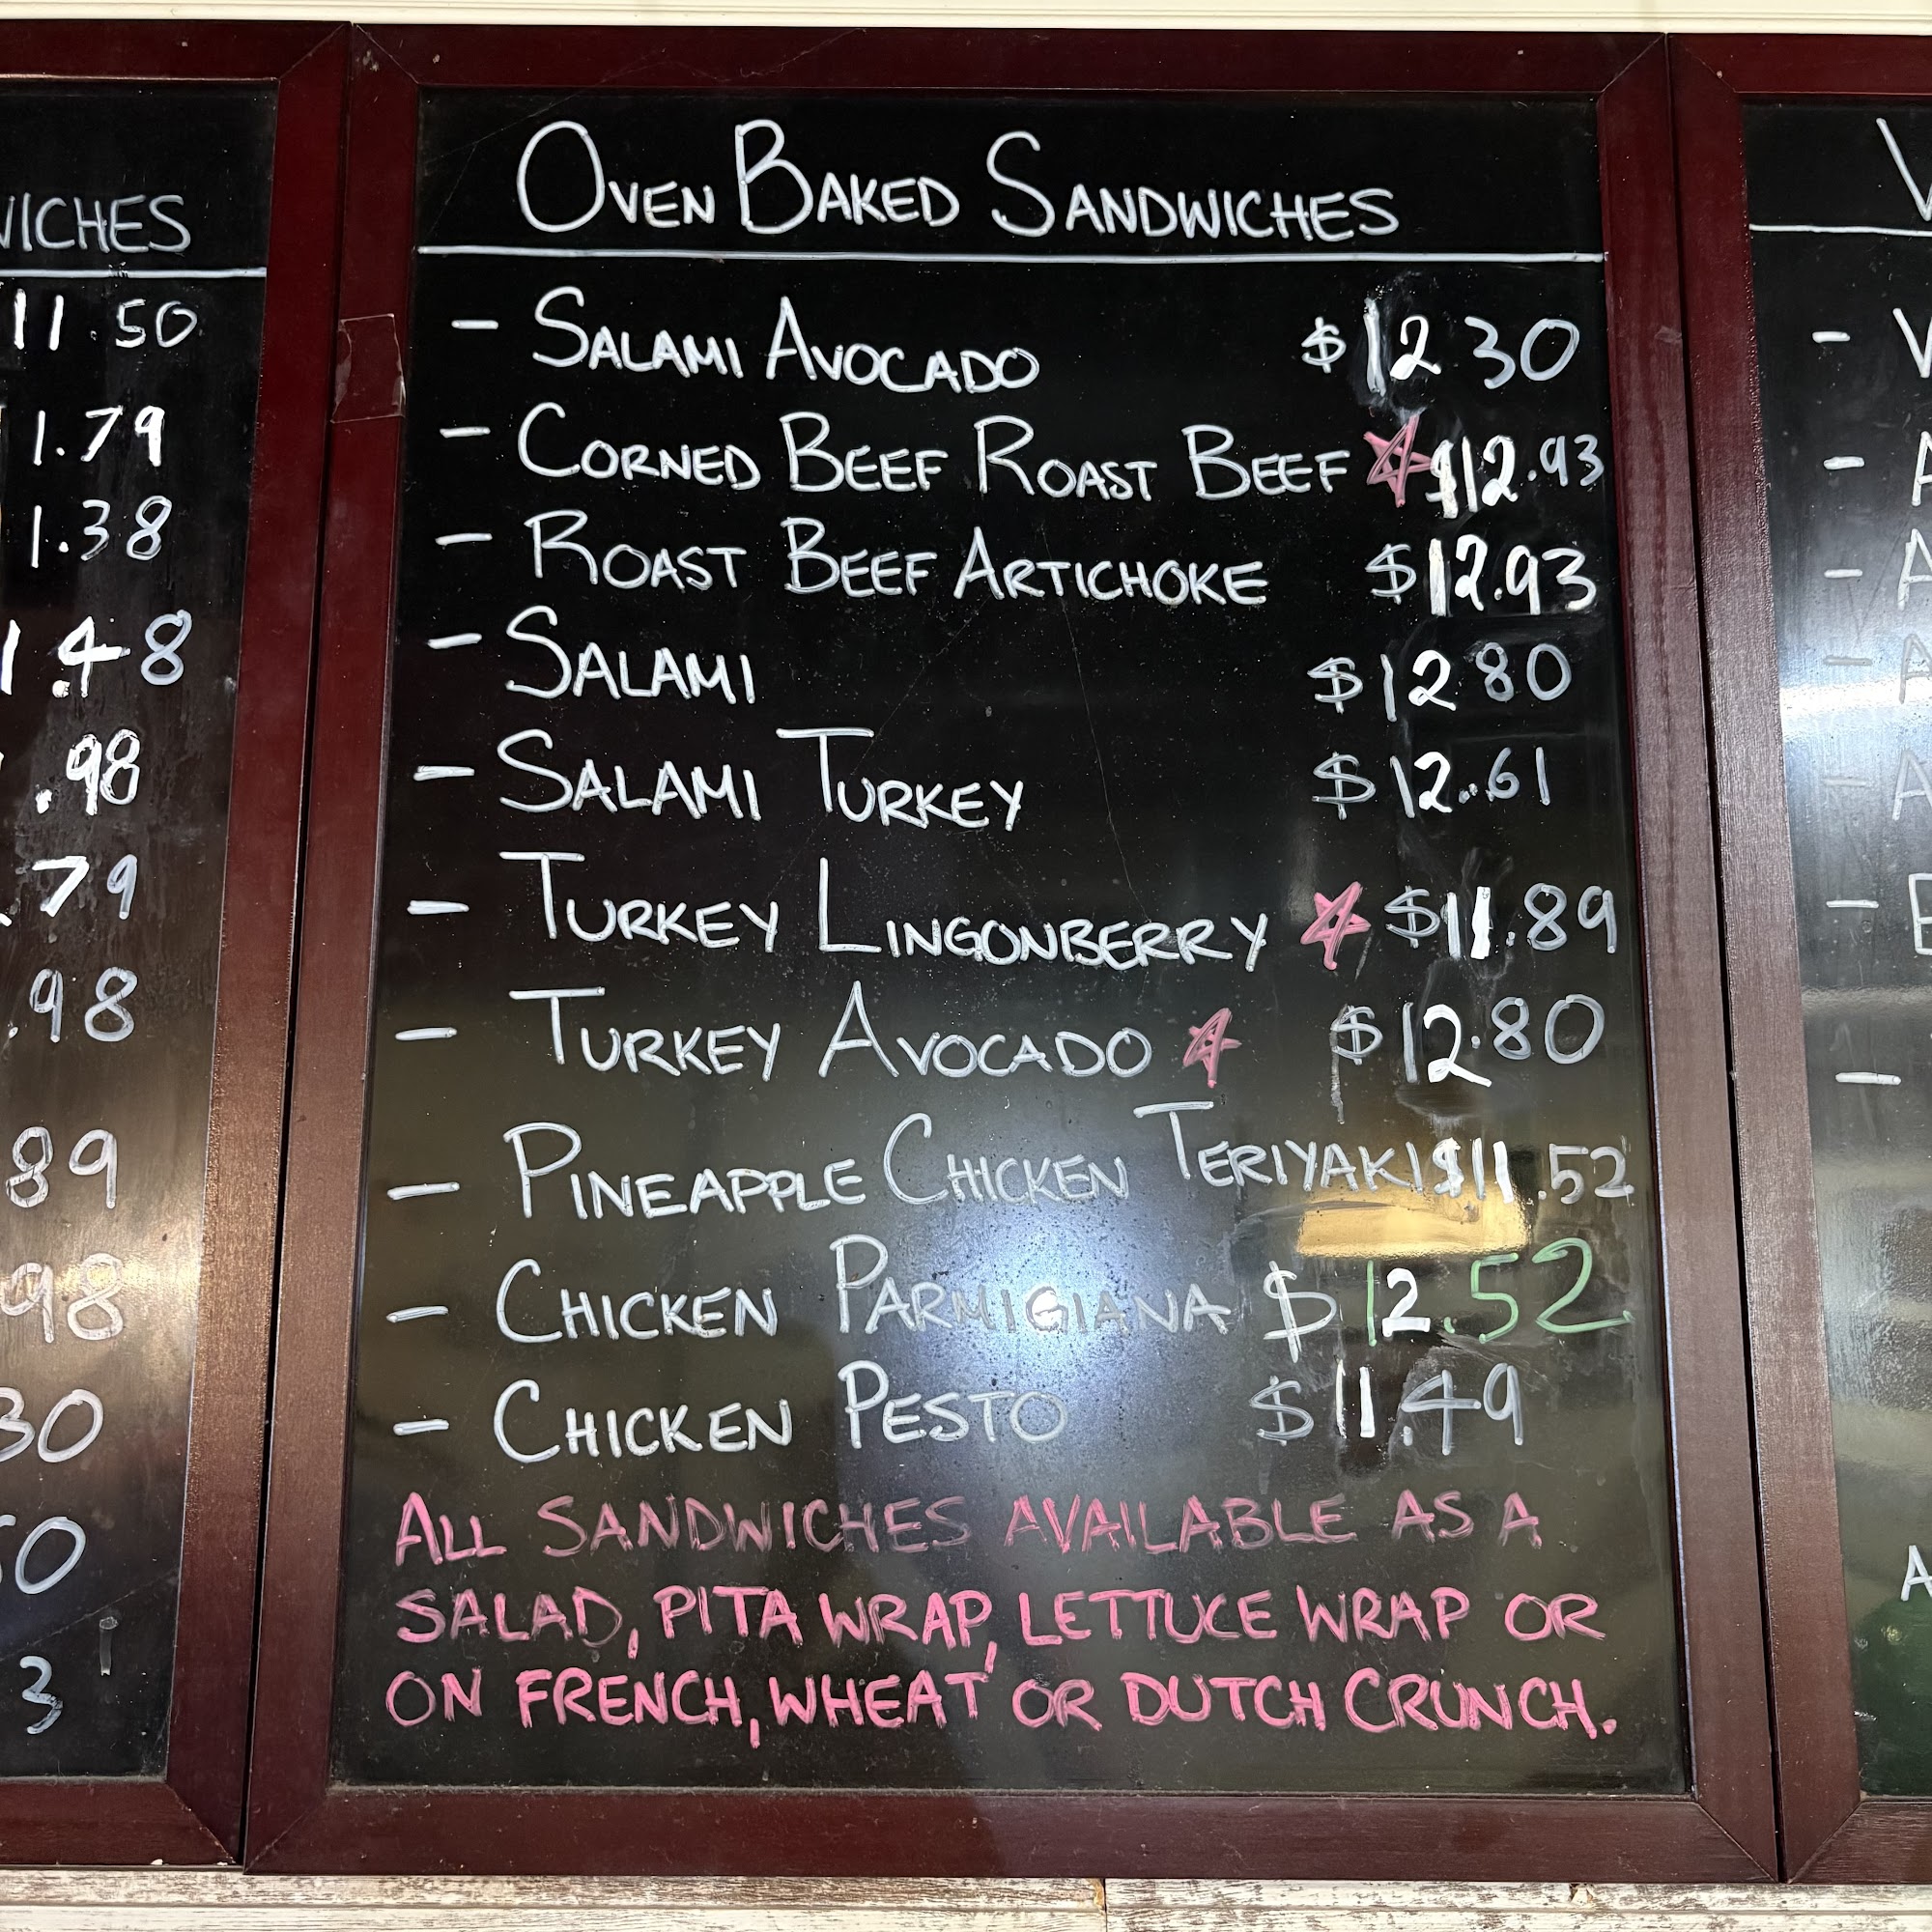 OVEN BAKED SANDWICHES
- SALAMI AVOCADO $12.30
- CORNED BEEF ROAST BEEF ☆ $12.93
- ROAST BEEF ARTICHOKE $12.93
- SALAMI $12 80
- SALAMI TURKEY $12..61
- TURKEY LINGONBERRY ☆ $11.89
- TURKEY AVOCADO ☆ $12.80
- PINEAPPLE CHICKEN TERIYAKI $11.52
- CHICKEN PARMIGIANA $12.52
- CHICKEN PESTO $11.49
ALL SANDWICHES AVAILABLE AS A
SALAD, PITA WRAP, LETTUCE WRAP OR
ON FRENCH, WHEAT OR DUTCH CRUNCH.
WICHES
11.50
1.79
1.38
1.48
.98
.79
.98
89
98
30
50
3